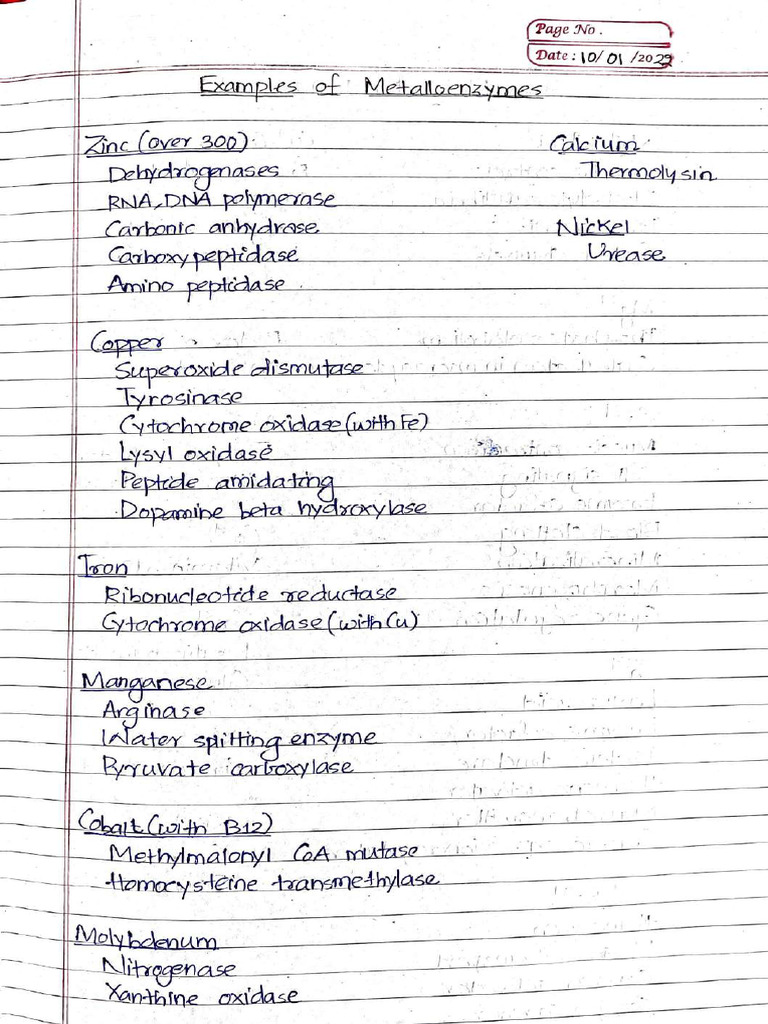 Page No.
Date: 10/01/2022
Examples of Metalloenzymes
Zinc (over 300)
Dehydrogenases
RNA, DNA polymerase
Carbonic anhydrase
Carboxy peptidase
Amino peptidase
Calcium
Thermolysin
Nickel
Urease
Copper
Superoxide dismutase
Tyrosinase
Cytochrome oxidase (with Fe)
Lysyl oxidase
Peptide amidating
Dopamine beta hydroxylase
Iron
Ribonucleotide reductase
Cytochrome oxidase (with Cu)
Manganese
Arginase
Water spitting enzyme
Pyruvate carboxylase
Cobalt (with B12)
Methylmalonyl CoA mutase
Homocysteine transmethylase
Molybdenum
Nitrogenase
Xanthine oxidase